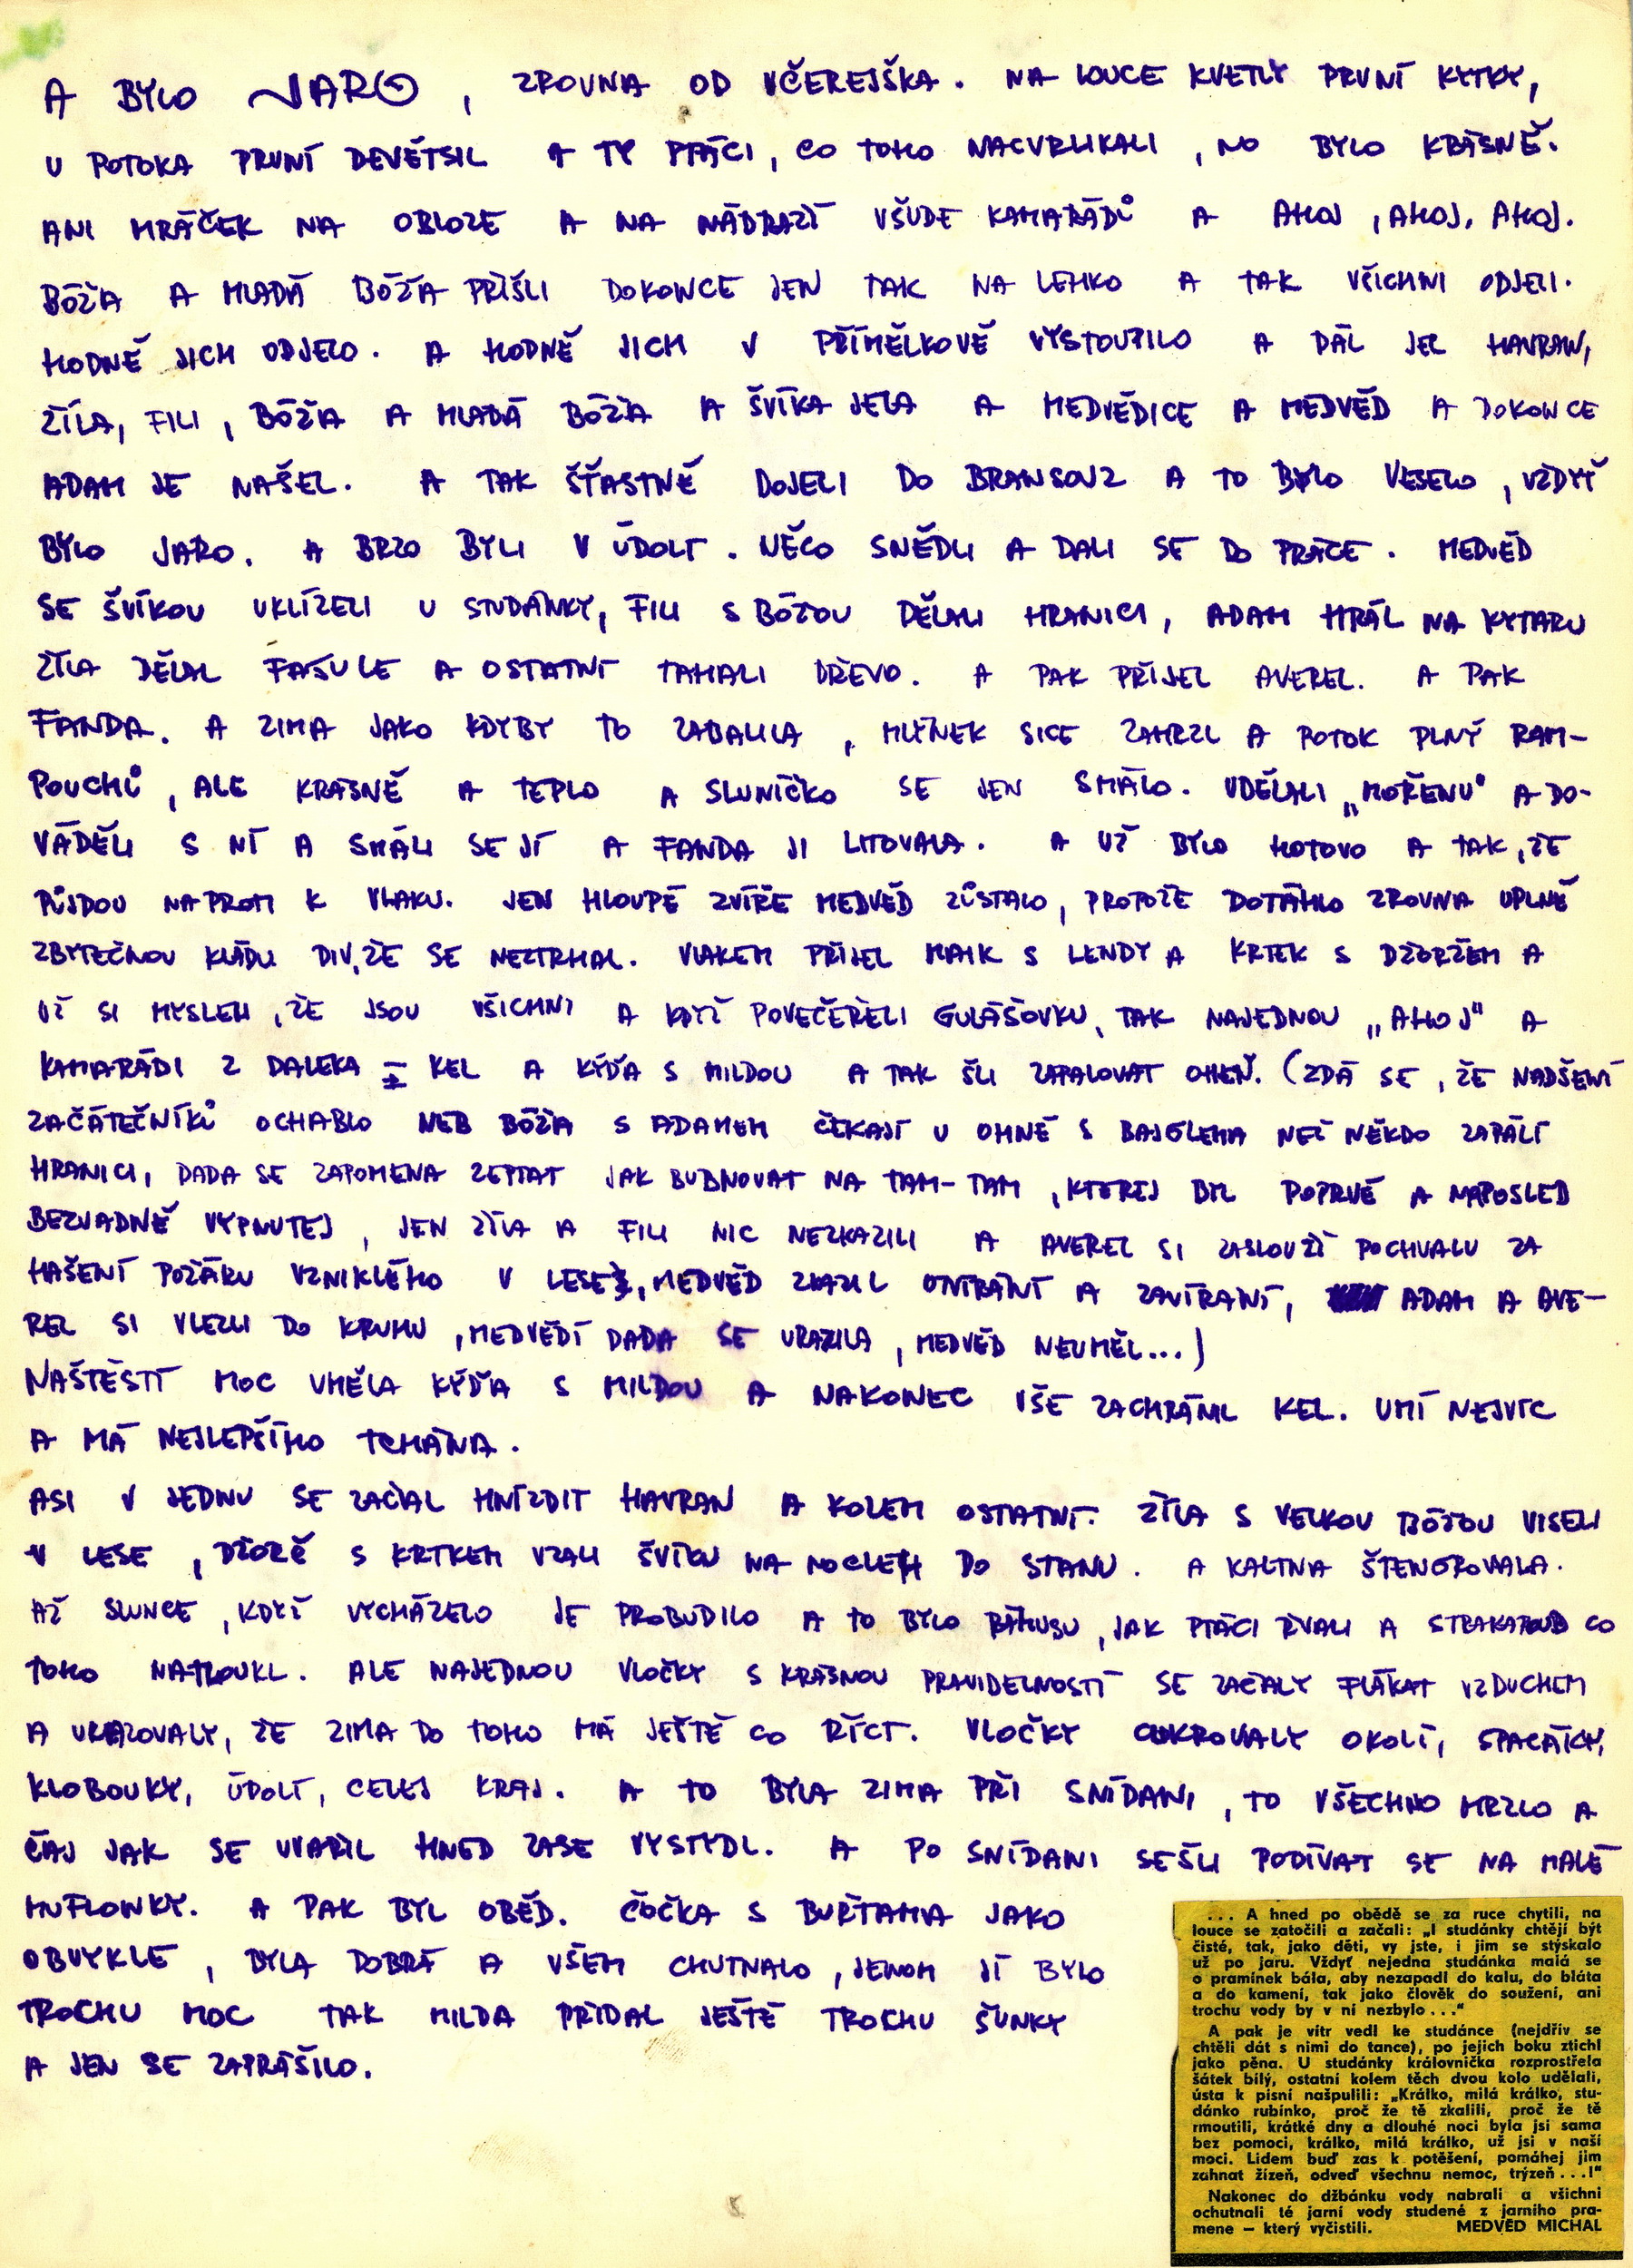 A BYLO JARO, ZROVNA OD VČEREJŠKA. NA LOUCE KVETLY PRVNÍ KYTKY,
U POTOKA PRVNÍ DEVĚTSIL A TY PTÁCI, CO TOHO NACVRLIKALI, NO BYLO KRÁSNĚ.
ANI MRÁČEK NA OBLOZE A NA NÁDRAZÍ VŠUDE KAMARÁDŮ A AHOJ, AHOJ, AHOJ.
BÓŽA A MLADÁ BÓŽA PŘIŠLI DOKONCE JEN TAK NA LEHKO A TAK VŠICHNI ODJELI.
HODNĚ JICH ODJELO. A HODNĚ JICH V PŘÍMĚLKOVĚ VYSTOUPILO A DÁL JEL HAVRAN,
ŽÍLA, FILI, BÓŽA A MLADÁ BÓŽA A ŠVÍKA JELA A MEDVĚDICE A MEDVĚD A DOKONCE
ADAM JE NAŠEL. A TAK ŠŤASTNĚ DOJELI DO BRANSOUZ A TO BYLO VESELO, VŽDYŤ
BYLO JARO. A BRZO BYLI V ÚDOLÍ. NĚCO SNĚDLI A DALI SE DO PRÁCE. MEDVĚD
SE ŠVÍKOU UKLÍZELI U STUDÁNKY, FILI S BÓŽOU DĚLALI HRANICI, ADAM HRÁL NA KYTARU
ŽÍLA DĚLAL FAJULE A OSTATNÍ TAHALI DŘEVO. A PAK PŘIJEL AVEREL. A PAK
FANDA. A ZIMA JAKO KDYBY TO ZABALILA, MLÝNEK SICE ZAMRZL A POTOK PLNÝ RAM-
POUCHŮ, ALE KRÁSNĚ A TEPLO A SLUNÍČKO SE JEN SMÁLO. UDĚLALI „MOŘENU" A DO-
VÁDĚLI S NÍ A SMÁLI SE JÍ A FANDA JI LITOVALA. A UŽ BYLO HOTOVO A TAK, ŽE
PŮJDOU NAPROTI K VLAKU. JEN HLOUPÉ ZVÍŘE MEDVĚD ZŮSTALO, PROTOŽE DOTÁHLO ZROVNA UPLNĚ
ZBYTEČNOU KLÁDU DIV, ŽE SE NEZTRHAL. VLAKEM PŘIJEL MAIK S LENDY A KRTEK S DŽORŽEM A
UŽ SI MYSLELI, ŽE JSOU VŠICHNI A KDYŽ POVEČEŘELI GULÁŠOVKU, TAK NAJEDNOU „AHOJ" A
KAMARÁDI Z DALEKA – KEL A KÝĎA S MILDOU A TAK ŠLI ZAPALOVAT OHEŇ. (ZDÁ SE, ŽE NADŠENÍ
ZAČÁTEČNÍKŮ OCHABLO NEB BÓŽA S ADAMEM ČEKAJÍ U OHNĚ S BAJGLEMA NEŽ NĚKDO ZAPÁLÍ
HRANICI, DADA SE ZAPOMENA ZEPTAT JAK BUBNOVAT NA TAM-TAM, KTEREJ BYL POPRVÉ A NAPOSLED
BEZVADNĚ VYPNUTEJ, JEN ŽÍLA A FILI NIC NEZKAZILI A AVEREL SI ZASLOUŽÍ POCHVALU ZA
HAŠENÍ POŽÁRU VZNIKLÉHO V LESE, MEDVĚD ZKAZIL OTVÍRÁNÍ A ZAVÍRÁNÍ, ADAM A AVE-
REL SI VLEZLI DO KRUHU, MEDVĚDÍ DADA SE URAZILA, MEDVĚD NEUMĚL...)
NAŠTĚSTÍ MOC UMĚLA KÝĎA S MILDOU A NAKONEC VŠE ZACHRÁNIL KEL. UMÍ NEJVÍC
A MÁ NEJLEPŠÍHO TCHÁNA.
ASI V JEDNU SE ZAČAL HNÍZDIT HAVRAN A KOLEM OSTATNÍ. ŽÍLA S VELKOU BÓŽOU VISELI
V LESE, DŽORŽ S KRTKEM VZALI ŠVÍKU NA NOCLEH DO STANU. A KALINA ŠTENOROVALA.
AŽ SLUNCE, KDYŽ VYCHÁZELO JE PROBUDILO A TO BYLO RÁMUSU, JAK PTÁCI ŘVALI A STRAKAPOUD CO
TOHO NATLOUKL. ALE NAJEDNOU VLOČKY S KRÁSNOU PRAVIDELNOSTÍ SE ZAČALY FLÁKAT VZDUCHEM
A UKAZOVALY, ŽE ZIMA DO TOHO MÁ JEŠTĚ CO ŘÍCT. VLOČKY CUKROVALY OKOLÍ, SPACÁKY,
KLOBOUKY, ÚDOLÍ, CELEJ KRAJ. A TO BYLA ZIMA PŘI SNÍDANI, TO VŠECHNO MRZLO A
ČAJ JAK SE UVAŘIL HNED ZASE VYSTYDL. A PO SNÍDANI SEŠLI PODÍVAT SE NA MALÉ
MUFLONKY. A PAK BYL OBĚD. ČOČKA S BUŘTAMA JAKO
OBVYKLE, BYLA DOBRÁ A VŠEM CHUTNALO, JENOM JÍ BYLO
TROCHU MOC TAK MILDA PŘIDAL JEŠTĚ TROCHU ŠUNKY
A JEN SE ZAPRÁŠILO.
... A hned po obědě se za ruce chytili, na
louce se zatočili a začali: „I studánky chtějí být
čisté, tak, jako děti, vy jste, i jim se stýskalo
už po jaru. Vždyť nejedna studánka malá se
o pramínek bála, aby nezapadl do kalu, do bláta
a do kamení, tak jako člověk do soužení, ani
trochu vody by v ní nezbylo ..."
A pak je vítr vedl ke studánce (nejdřív se
chtěli dát s nimi do tance), po jejich boku ztichl
jako pěna. U studánky královnička rozprostřela
šátek bílý, ostatní kolem těch dvou kolo udělali,
ústa k písni našpulili: „Králko, milá králko, stu-
dánko rubínko, proč že tě zkalili, proč že tě
rmoutili, krátké dny a dlouhé noci byla jsi sama
bez pomoci, králko, milá králko, už jsi v naší
moci. Lidem buď zas k potěšení, pomáhej jim
zahnat žízeň, odveď všechnu nemoc, trýzeň ...!"
Nakonec do džbánku vody nabrali a všichni
ochutnali té jarní vody studené z jarního pra-
mene — který vyčistili. MEDVĚD MICHAL